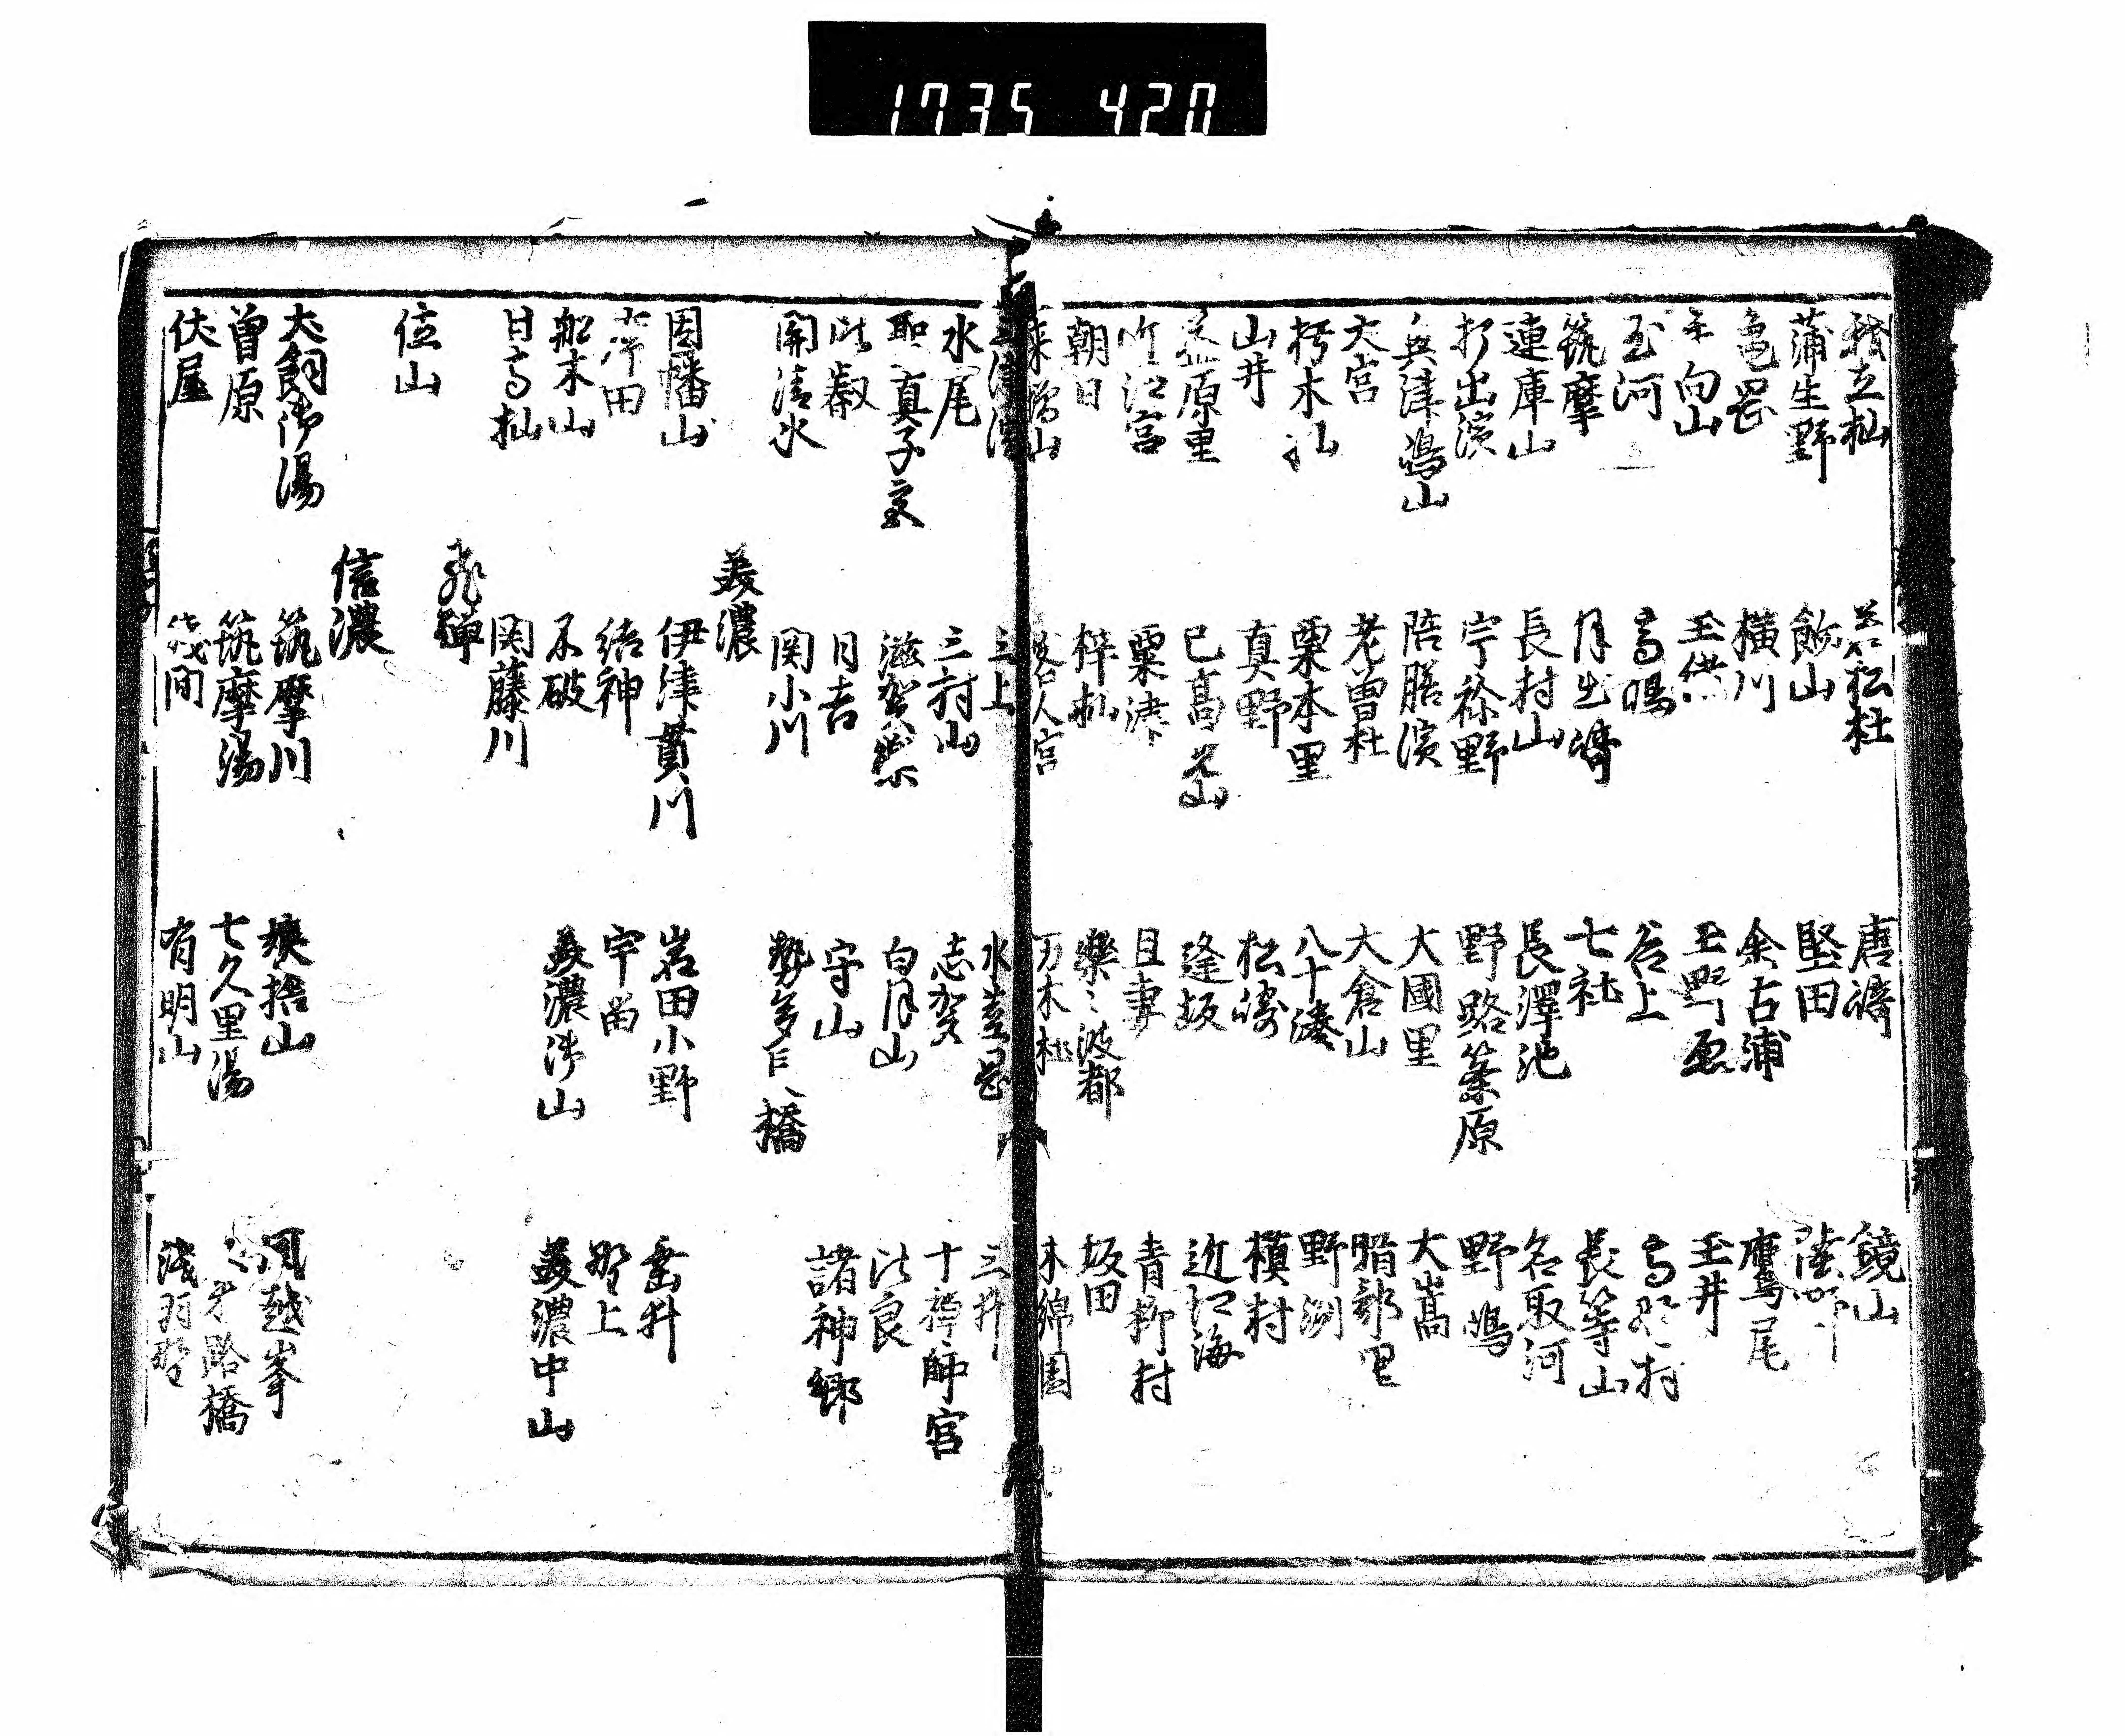 1735 420
杣 若松杜 唐濱 鏡山
蒲生野 餘山 堅田
亀岡 横川 余古浦 鷹尾
向山 玉井
玉河 高嶋 谷上 高野村
筑摩 月出濱 七社 長等山
連庫山 長村山 長澤池 名取河
打出濱 宇祢野 野路篠原 野嶋
兵津嶋山 陪膳濱 大國里 大嵩
大宮 老曽杜 大倉山
朽木杣 栗本里 八十湊 野洲
山井 真野 松濱 槙村
原里 已高山 逢坂 近江海
竹江宮 粟津 且妻 青柳村
朝日 梓杣 樂々波都 坂田
万木杜 木綿園
三上 水茎岡 三井
水尾 三村山 志賀 十禅師宮
聖真子宮 滋賀樂 白月山 比良
比叡 日吉 守山 諸神郷
關清水 関小川 勢多長橋
美濃
因幡山 伊津貫川 岩田小野 垂井
結神 野上
船木山 不破 美濃御山 美濃中山
日高杣 関藤川
飛騨
位山
信濃
犬飼御湯 筑摩川 姨捨山 風越峯
曽原 筑摩湯 七久里湯 路橋
伏屋 浅間 有明山 浅羽野